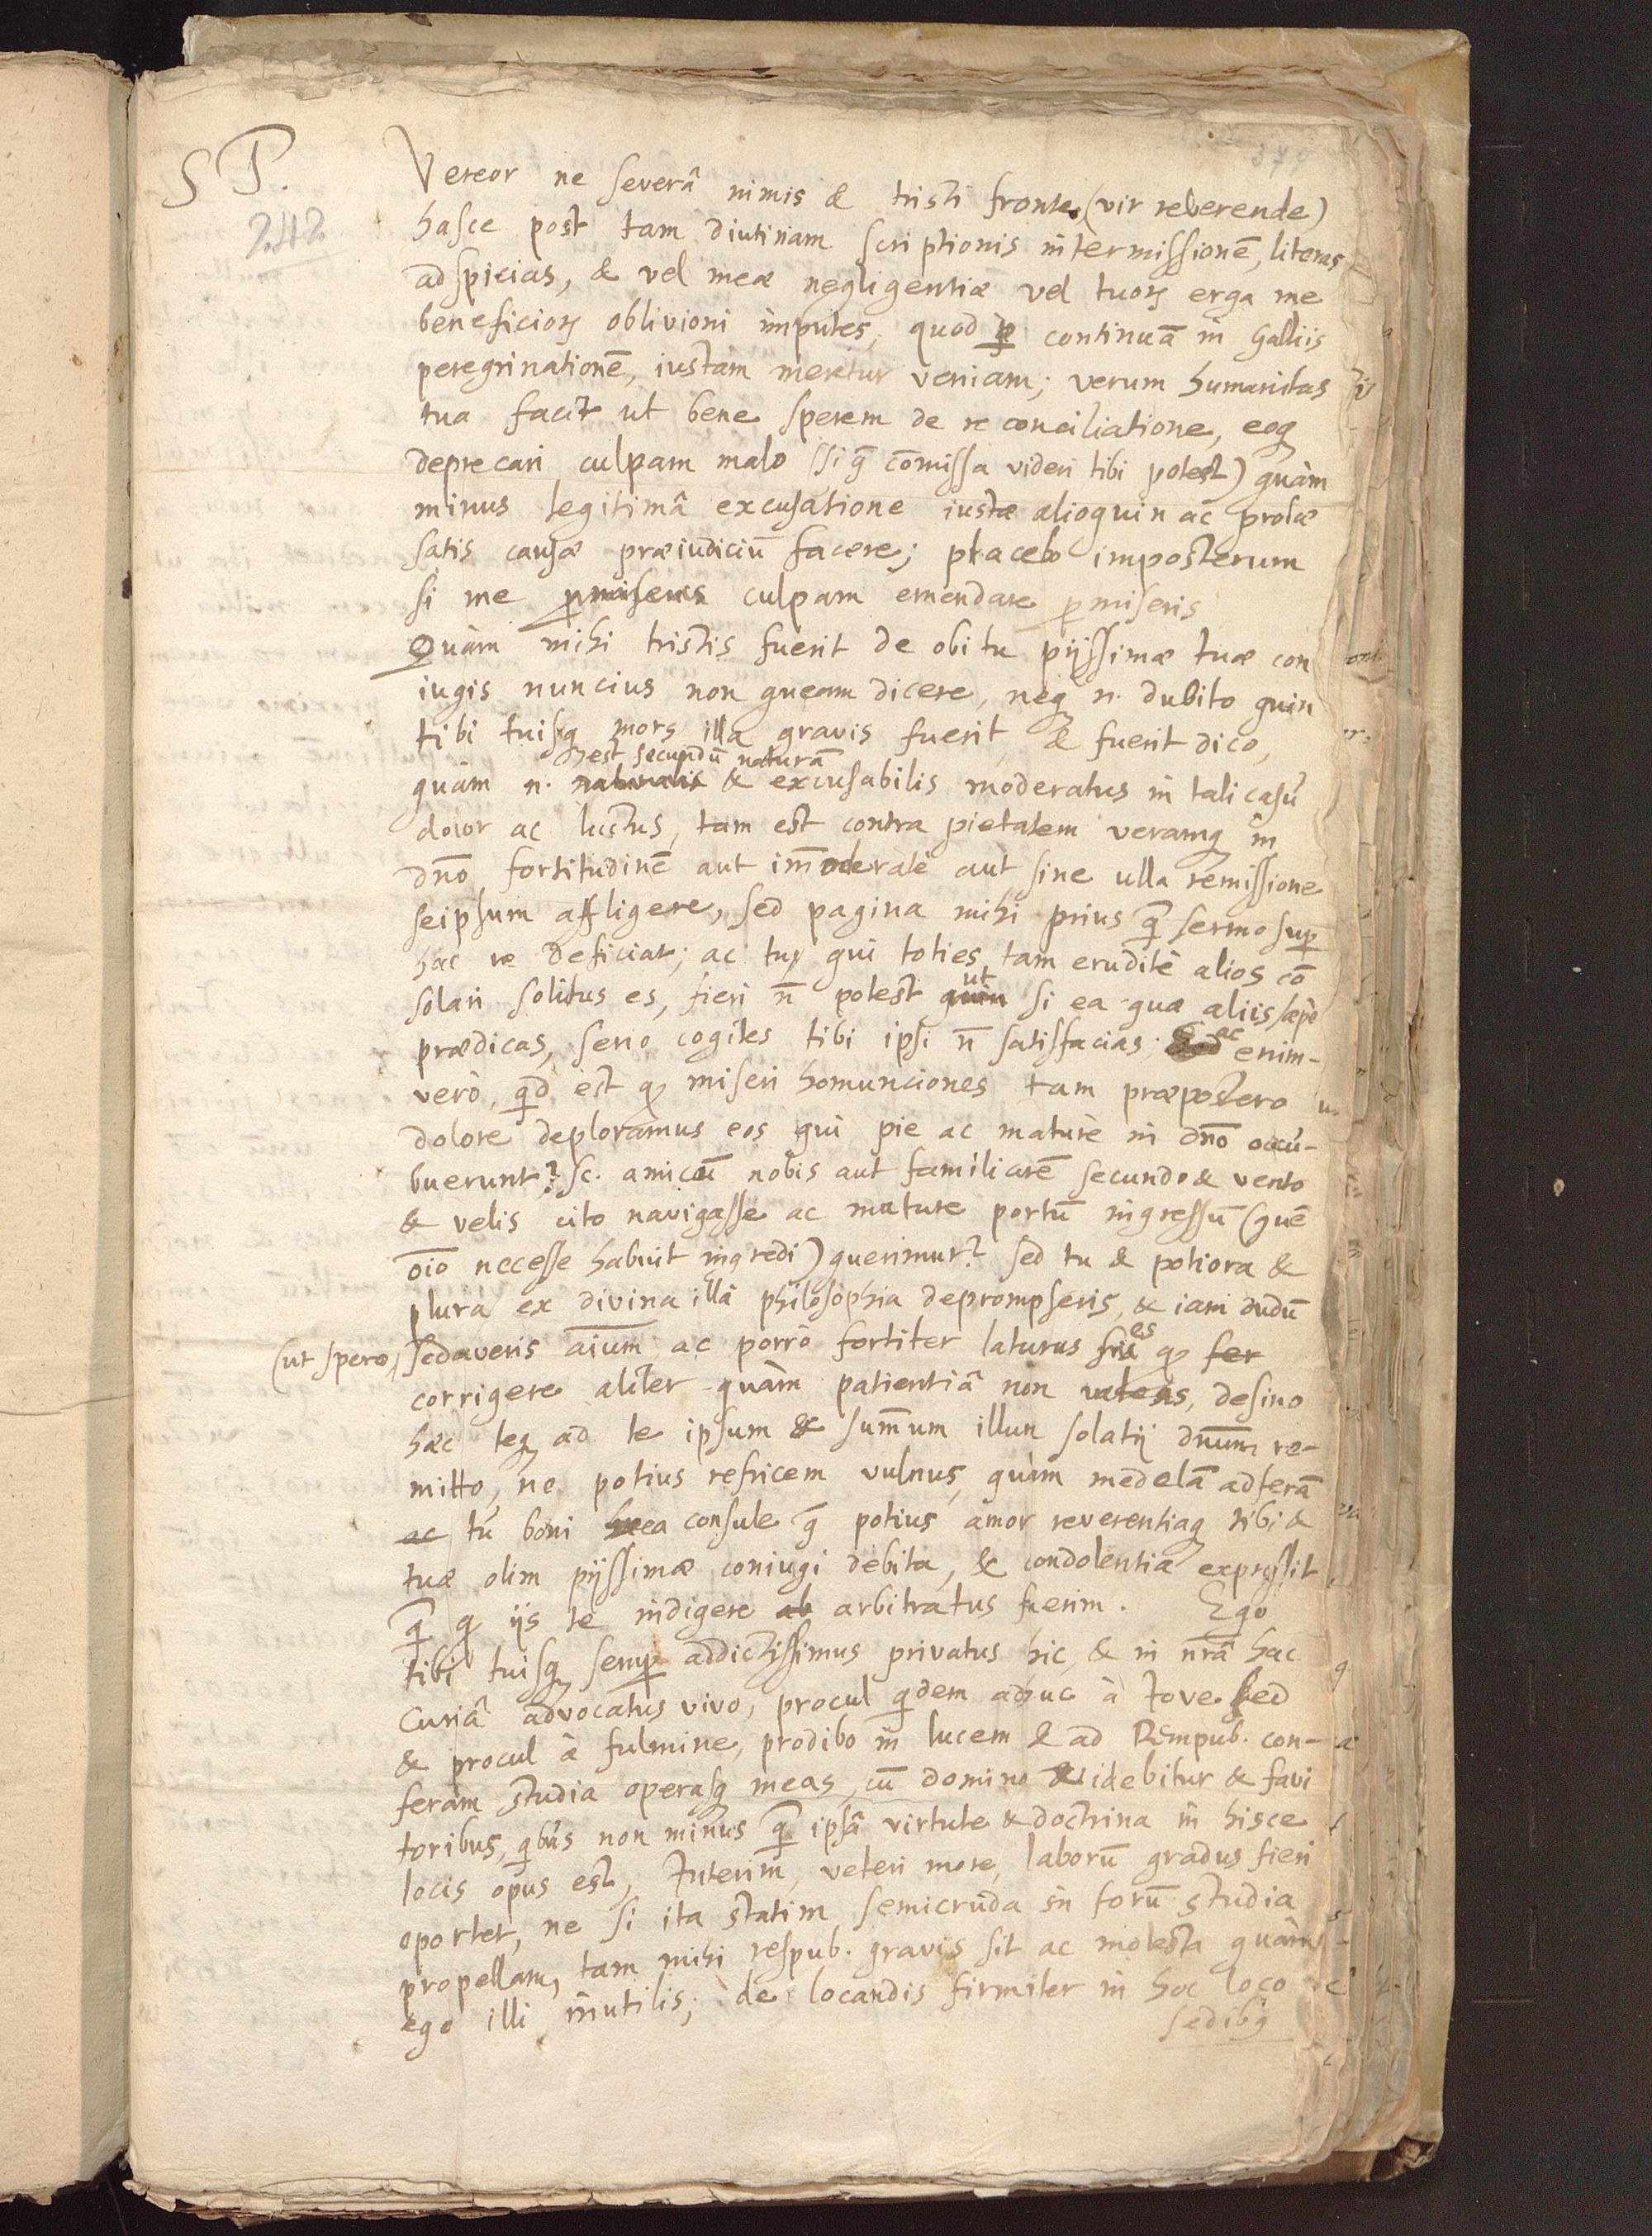 S P.
242
Vereor ne severâ nimis & tristi fronte, (vir reverende)
hasce post tam diutinam scriptionis intermissionē, literas
adspicias, & vel meæ negligentiæ vel tuoꝝ erga me
beneficioꝝ oblivioni imputes, quod ꝑ continuā in Galliis
peregrinationē, iustam meretur veniam; verum humanitas
tua facit ut bene sperem de reconciliatione, eoq́
deprecari culpam malo (si q̄ com̄issa videri tibi potest) quàm
minus legitimâ excusatione iustæ alioquin ac probæ
satis causæ præiudiciū facere; placebo imposterum
si me ꝑmiseris culpam emendare ꝑmiseris
Quàm mihi tristis fuerit de obitu pijssimæ tuæ con
iugis nuncius non queam dicere, neq́ n. dubito quin
tibi tuisq́ mors illa gravis fuerit & fuerit dico,
est secundū naturā
quàm n. naturalis & excusabilis moderatus in tali casū
dolor ac luctus, tam est contra pietatem veramq́ in
dn̄o fortitudinē aut im̄oderatè aut sine ulla remissione
seipsum affligere, sed pagina mihi prius q̄ sermo suꝑ
hac re deficiat; ac tu, qui toties tam eruditè alios cō
ut
solari solitus es, fieri n̄ potest quin si ea quæ aliis sæpè
ac
prædicas, serio cogites tibi ipsi n̄ satisfacias; Sed enim-
verò, qd est qꝫ miseri homunciones tam præpostero
dolore deploramus eos qui pie ac maturè in dn̄o occu-
buerunt? sc. amicū nobis aut familiarē secundo & vento
& velis cito navigasse ac mature portū ingressū (quē
oīo necesse habuit ingredi) querimur? sed tu & potiora &
plura ex divina illâ philosophia deprompseris, & iam dudū
es
(ut spero) sedaveris aīum, ac porrò fortiter laturus sis qꝫ fer
corrigere aliter quàm patientiâ non valeas, desino
hæc teq́ ad te ipsum & sum̄um illun solatij dn̄um re-
mitto, ne potius refricem vulnus, quàm medelā adferā
ac tu boni hæc ea consule q̄ potius amor reverentiaq́ tibi &
tuæ olim pijssimæ coniugi debita, & condolentia expressit
q̄ qꝫ ijs te indigere ab arbitratus fuerim. Ego
tibi tuisq́ semꝑ addictissimus privatus hic, & in nr̄â hac
Curiâ advocatus vivo, procul qdem adhuc à Iove sed
& procul à fulmine, prodibo in lucem & ad Rempub. con-
feram studia operasq́ meas, cū domino videbitur & favi
toribus, qbus non minus q̄ ipsâ virtute & doctrina in hisce
locis opus est, Interim, veteri more, laborū gradus fieri
oportet, ne si ita statim semicruda in forū studia
propellam, tam mihi respub. gravis sit ac molesta quàm
ego illi inutilis; de locandis firmiter in hoc loco
sedibq